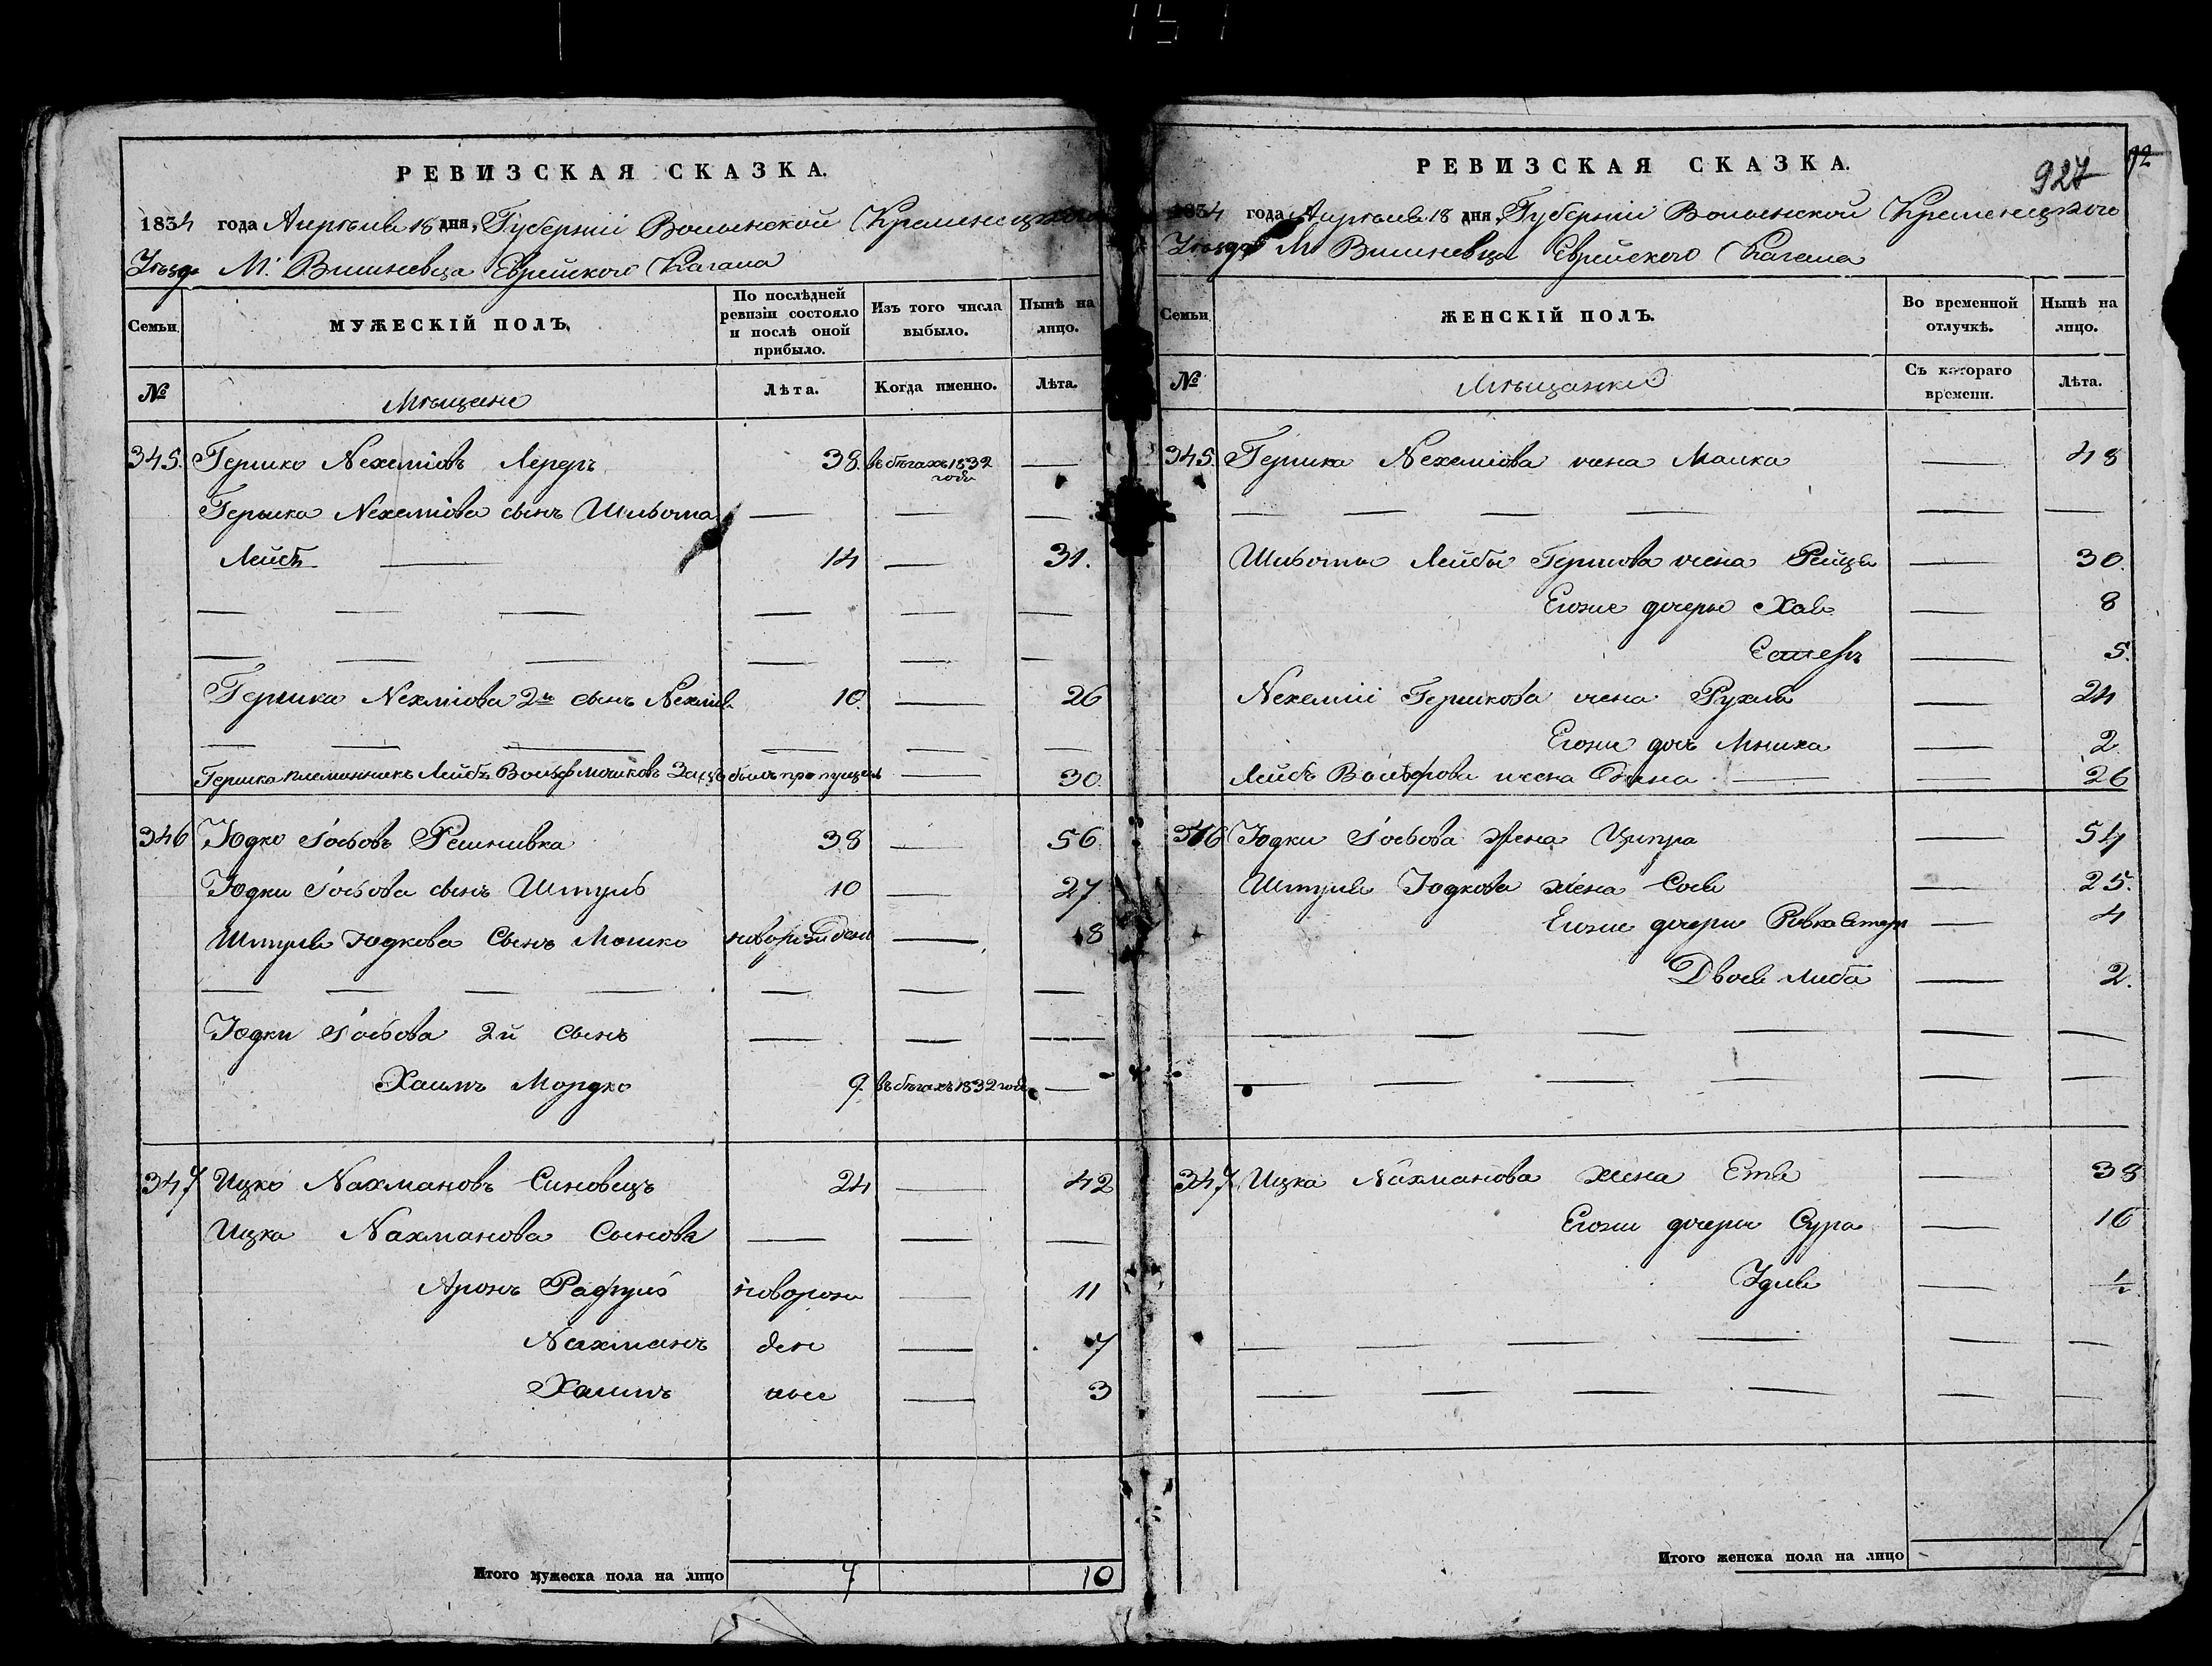 РЕВИЗСКАЯ СКАЗКА.
1834 года Апрѣля 18 дня, Губерніи Волынской Кременецкаго
Уѣзда М. Вишневца Еврейского Кагала
Семьи.
МУЖЕСКІЙ ПОЛЪ.
По послѣдней ревизіи состояло и послѣ оной прибыло.
Изъ того числа выбыло.
Нынѣ на лицо.
№
Мѣщане
Лѣта.
Когда именно.
Лѣта.
345. Гершко Nехеміовъ Лереръ 38 въ бѣгахъ 1832 года —
Гершка Nехеміова сынъ Шліома — — —
Лейбъ — 14 — 31.
— — — — — —
— — — — — —
Гершка Nехміова 2й сынъ Nехмія 10 — 26
— — — — — —
Гершка племянникъ Лейбъ Вольф Мошковъ былъ пропущенъ — 30.
346 Юдко Іосьовъ 38 — 56
Юдки Іосьова сынъ Шмуль 10 — 27
Шмуля Юдкова Сынъ Мошко новорожден — 8
— — — — — — —
Юдки Іосьова 2й сынъ — — —
Хаимъ Мордко 9. въ бѣгахъ 1832 года —
347 Ицко Nахмановъ Синовецъ 24 — 42
Ицка Nахманова Сыновя — — —
Аронъ Рафуль новорож — 11
Nахманъ ден — 7
Хаимъ ные — 3
Итого мужеска пола на лицо 7 10
РЕВИЗСКАЯ СКАЗКА.
927
72
1834 года Апрѣля 18 дня, Губерніи Волынской Кременецкого
Уѣзда М Вишневца Еврейского Кагала
Семьи.
ЖЕНСКІЙ ПОЛЪ.
Во временной отлучкѣ.
Нынѣ на лицо.
№
Мѣщанки
Съ катораго времени.
Лѣта.
345. Гершка Nехеміова жена Малка — 48
— — — — — —
Шліомы Лейбы Гершова жена Рейзя — 30.
Егоже дочери Хая — 8
Естеръ — 5.
Nехеміи Гершкова жена Рухля — 24
Егоже дочь — 2
Лейбъ Вольфова жена — — 26
346 Юдки Іосьова жена Ципра — 54
Шмуля Юдкова жена Сося — 25.
Егоже дочери Ривка Естеръ — 4
Двося Либа — 2.
— — — — — —
— — — — — —
347 Ицка Nахманова жена Етя — 38
Егоже дочери Сура — 16
Удля — ½
— — — — —
— — — — — —
Итого женска пола на лицо